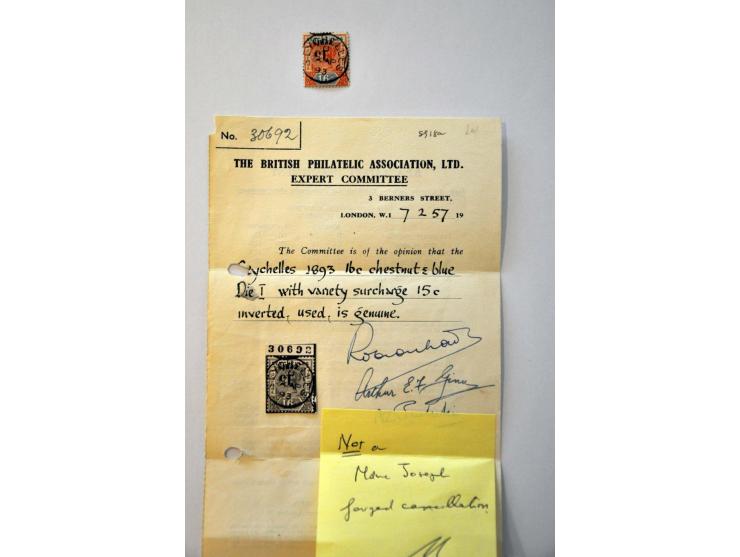 No. 30692
SG18a
THE BRITISH PHILATELIC ASSOCIATION, LTD.
EXPERT COMMITTEE
3 BERNERS STREET,
LONDON, W.1 7 2 57 19
The Committee is of the opinion that the
Seychelles 1893 16c chestnut & blue
Die I with variety surcharge 15c
inverted, used, is genuine.
30692
Arthur E.F.
Not a
Mme Joseph
forged cancellation